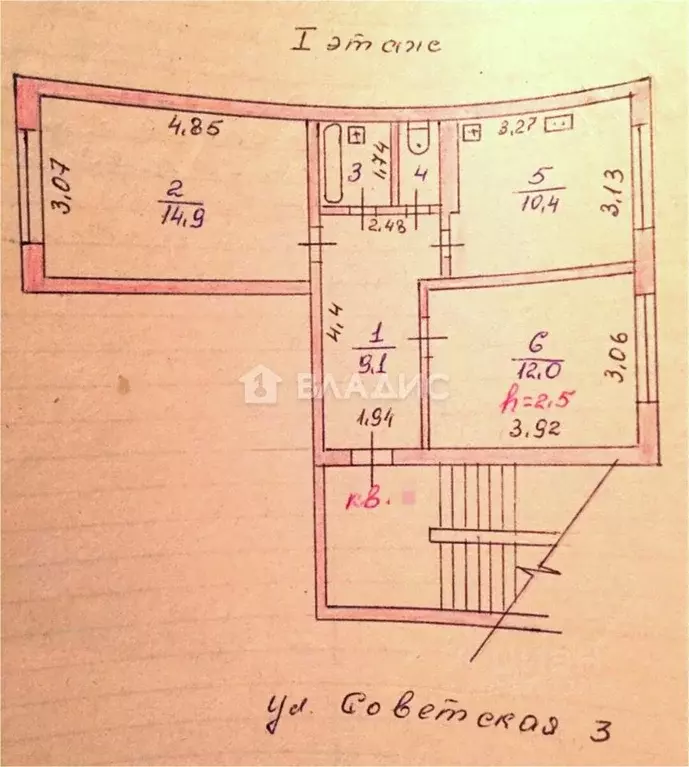 I этаж
4.85
3.07
2
14.9
3
1,74
4
2.48
3,27
5
10.4
3,13
4,4
1
9.1
1,94
6
12.0
h=2.5
3,92
3,06
ВЛАДИС
кв.
ул. Советская 3